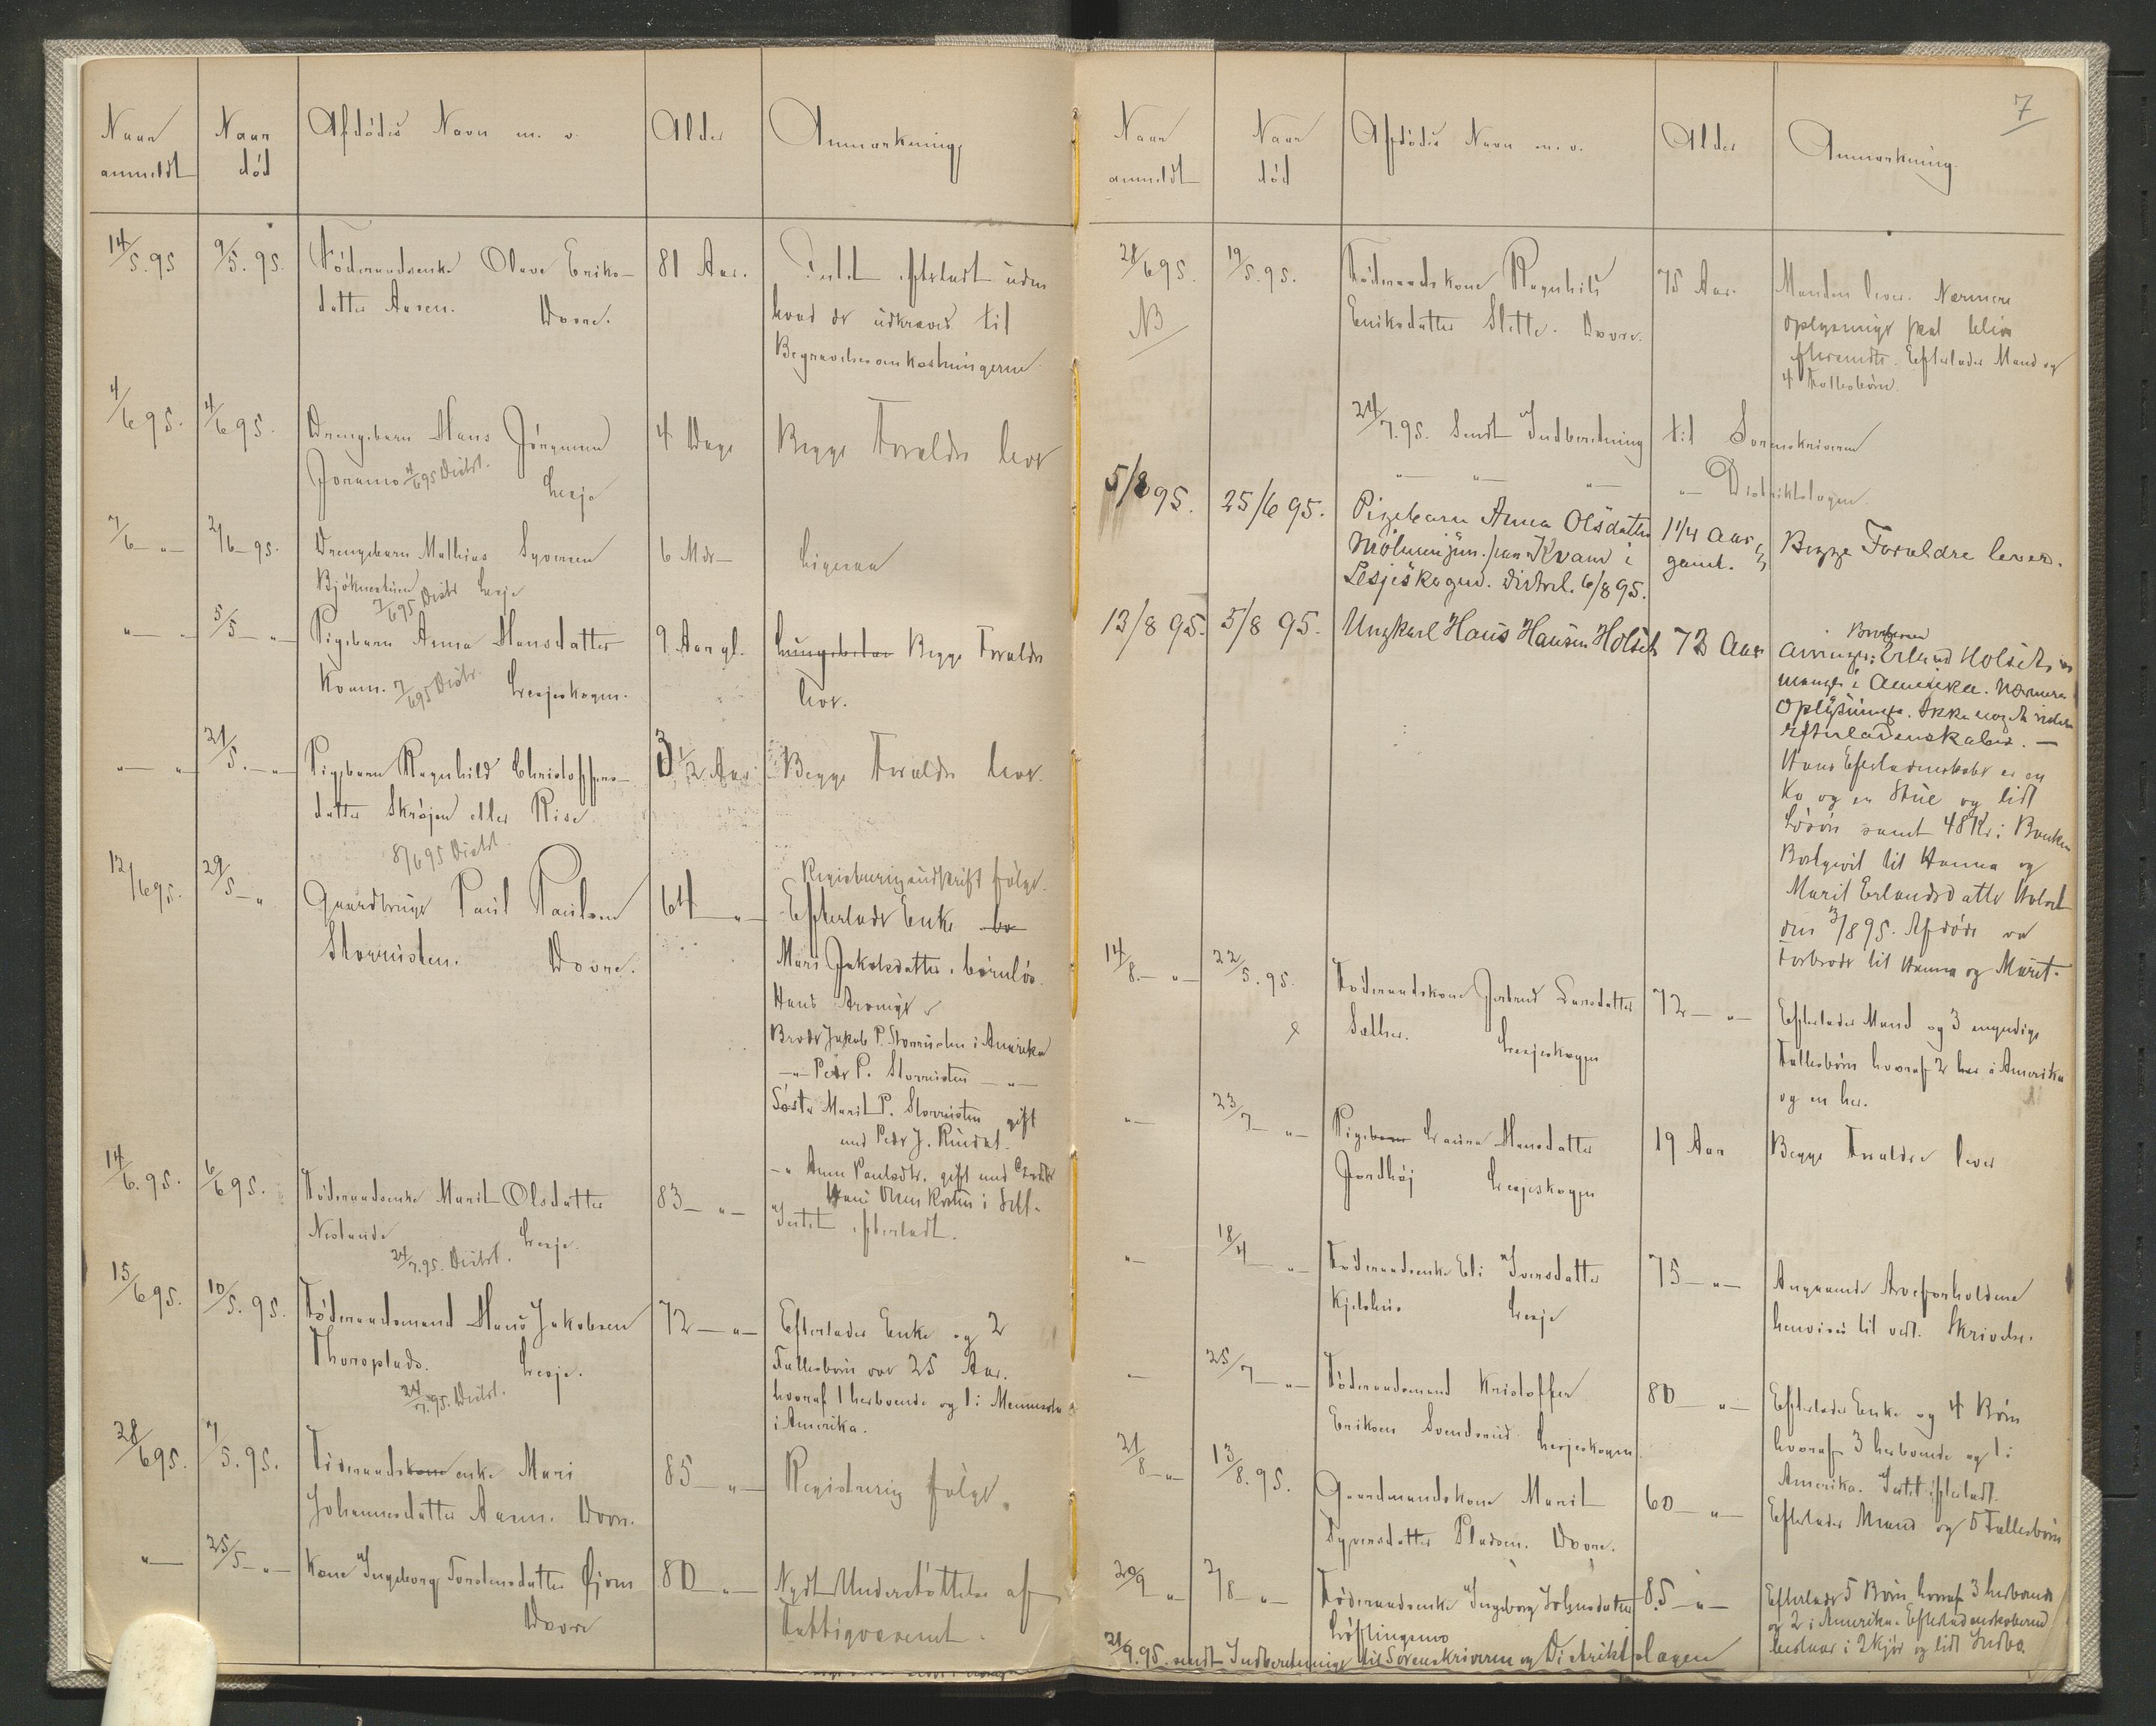 Naar anmeldt
Naar død
Afdødes Navn m. v.
Alder
Anmærkning
14/5.95
9/5.95.
Föderaadsenke Olave Eriks-
datter Aasen. Dovre.
81 Aar.
Intet efterladt uden
hvad der udkræves til
Begravelsesomkostningerne.
4/6 95.
4/6 95.
Drengebarn Hans Jörgensen
Joramo 4/6 95 Distrl. Lesje
4 Dage
Begge Forældre lever
7/6 - " -
2/6 - 95.
Drengebarn Mathias Syversen
7/6 95 Distr Lesje
6 Mdr -
Ligesaa
" - "
5/5 - " -
Pigebarn Anna Hansdatter
Kvam. 7/6 95 Distr. Lesjeskogen.
9 Aar gl.
Begge Forældre
lever.
" - "
21/5. - " -
Pigebarn Ragnhild Christoffers-
datter Skrøjen eller Rise
8/6 95 Distrl.
3 1/2 Aar
Begge Forældre lever.
12/6 95.
29/5 - "
Gaardbruger Paul Paulsen
Storrusten. Dovre.
64 - " -
Registreringsudskrift følger.
Efterlader Enke bo
Mari Jakobsdatter, børnløs.
Hans Arvinger er
Broder Jakob P. Storrusten i Amerika
- " - Peder P. Storrusten - " -
Søster Marit P. Storrusten gift
med Peder J. Rusdal.
- " Anne Paulsdtr. gift med
Hans i Sell.
14/6.95.
6/6 95.
Föderaadsenke Marit Olsdatter
Neslunde Lesje.
24/7.95. Distrl.
83 - " -
Intet efterladt.
15/6 95.
10/5.95.
Föderaadsmand Hans Jakobsen
Thorsplads. Lesje.
24/7.95. Distrl.
72 - " -
Efterlader Enke og 2
Fællesbørn over 25 Aar.
hvoraf 1 herboende og 1 i Mennesota
i Amerika.
28/6 95.
7/5.95.
Föderaadskone enke Mari
Johannesdatter Aasen. Dovre.
85 - " -
Registrering følger.
" -
25/5 - " -
Kone Ingeborg Torstensdatter Øjom
Dovre
80 - " -
Nydt Understøttelse af
Fattigvæsenet.
7
Naar anmeldt
Naar død
Afdødes Navn m. v.
Alder
Anmærkning.
28/6 95.
NB
19/5.95.
Föderaadskone Ragnhild
Eriksdatter Slette. Dovre.
75 Aar.
Manden lever. Nærmere
oplysninger skal blive
eftersendt. Efterlader Mand og
4 Fællesbørn.
24/7.95. Sendt Indberetning til Sorenskriveren
" - " - " - " - Distriktslægen.
5/8 95.
25/6 95.
Pigebarn Anna Olsdatter
Mølmen paa Kvam i
Lesjeskogen. Distrl. 6/8 95.
1 1/4 Aar
gaml.
Begge Forældre lever.
13/8 95.
5/8 95.
Ungkarl Hans Hansen Holset
73 Aar
Broderen
Arvinger: Erland Holset og
mange i Amerika. Nærmere
Oplysninger. Ikke noget videre
efterladenskaber. -
Hans Efterladenskaber er en
Ko og en Stue og lidt
Løsøre samt 48 Kr. i Banken
Bortgivet til Hanna og
Marit Erlandsdatter Holset
den 3/8 95. Afdøde var
Farbroder til Hanna og Marit.
14/8. - " -
22/5.95.
Föderaadskone Jertrud Larsdatter
Lesjeskogen
72 - " -
Efterlader Mand og 3 myndige
Fællesbørn hvoraf 2 har i Amerika
og en her.
" -
23/7 - " -
Pigebarn Laura Hansdatter
Jordhøj Lesjeskogen
19 Aar
Begge Forældre lever
" -
18/4 - " -
Föderaadsenke Eli Iversdatter
Kjelshus Lesje
75 - " -
Angaaende Arveforholdene
henvises til vedl. Skrivelse.
" -
25/7 - " -
Föderaadsmand Kristoffer
Eriksen Svendsrud Lesjeskogen
80 - " -
Efterlader Enke og 4 Børn
hvoraf 3 herboende og 1 i
Amerika. Intet efterladt.
21/8 - " -
13/8.95.
Gaardmandskone Marit
Syversdatter Pladsen. Dovre.
60 - " -
Efterlader Mand og 5 Fællesbørn
20/9 - "
2/8 - "
Föderaadsenke Ingeborg Johnsdatter
Löftingsmo
85 - " -
Efterlader 5 Børn hvoraf 3 herboende
og 2 i Amerika. Efterladenskaberne
bestaar i 2 Kjør og lidt Indbo.
21/9.95. sendt Indberetninger til Sorenskriveren og Distriktslægen